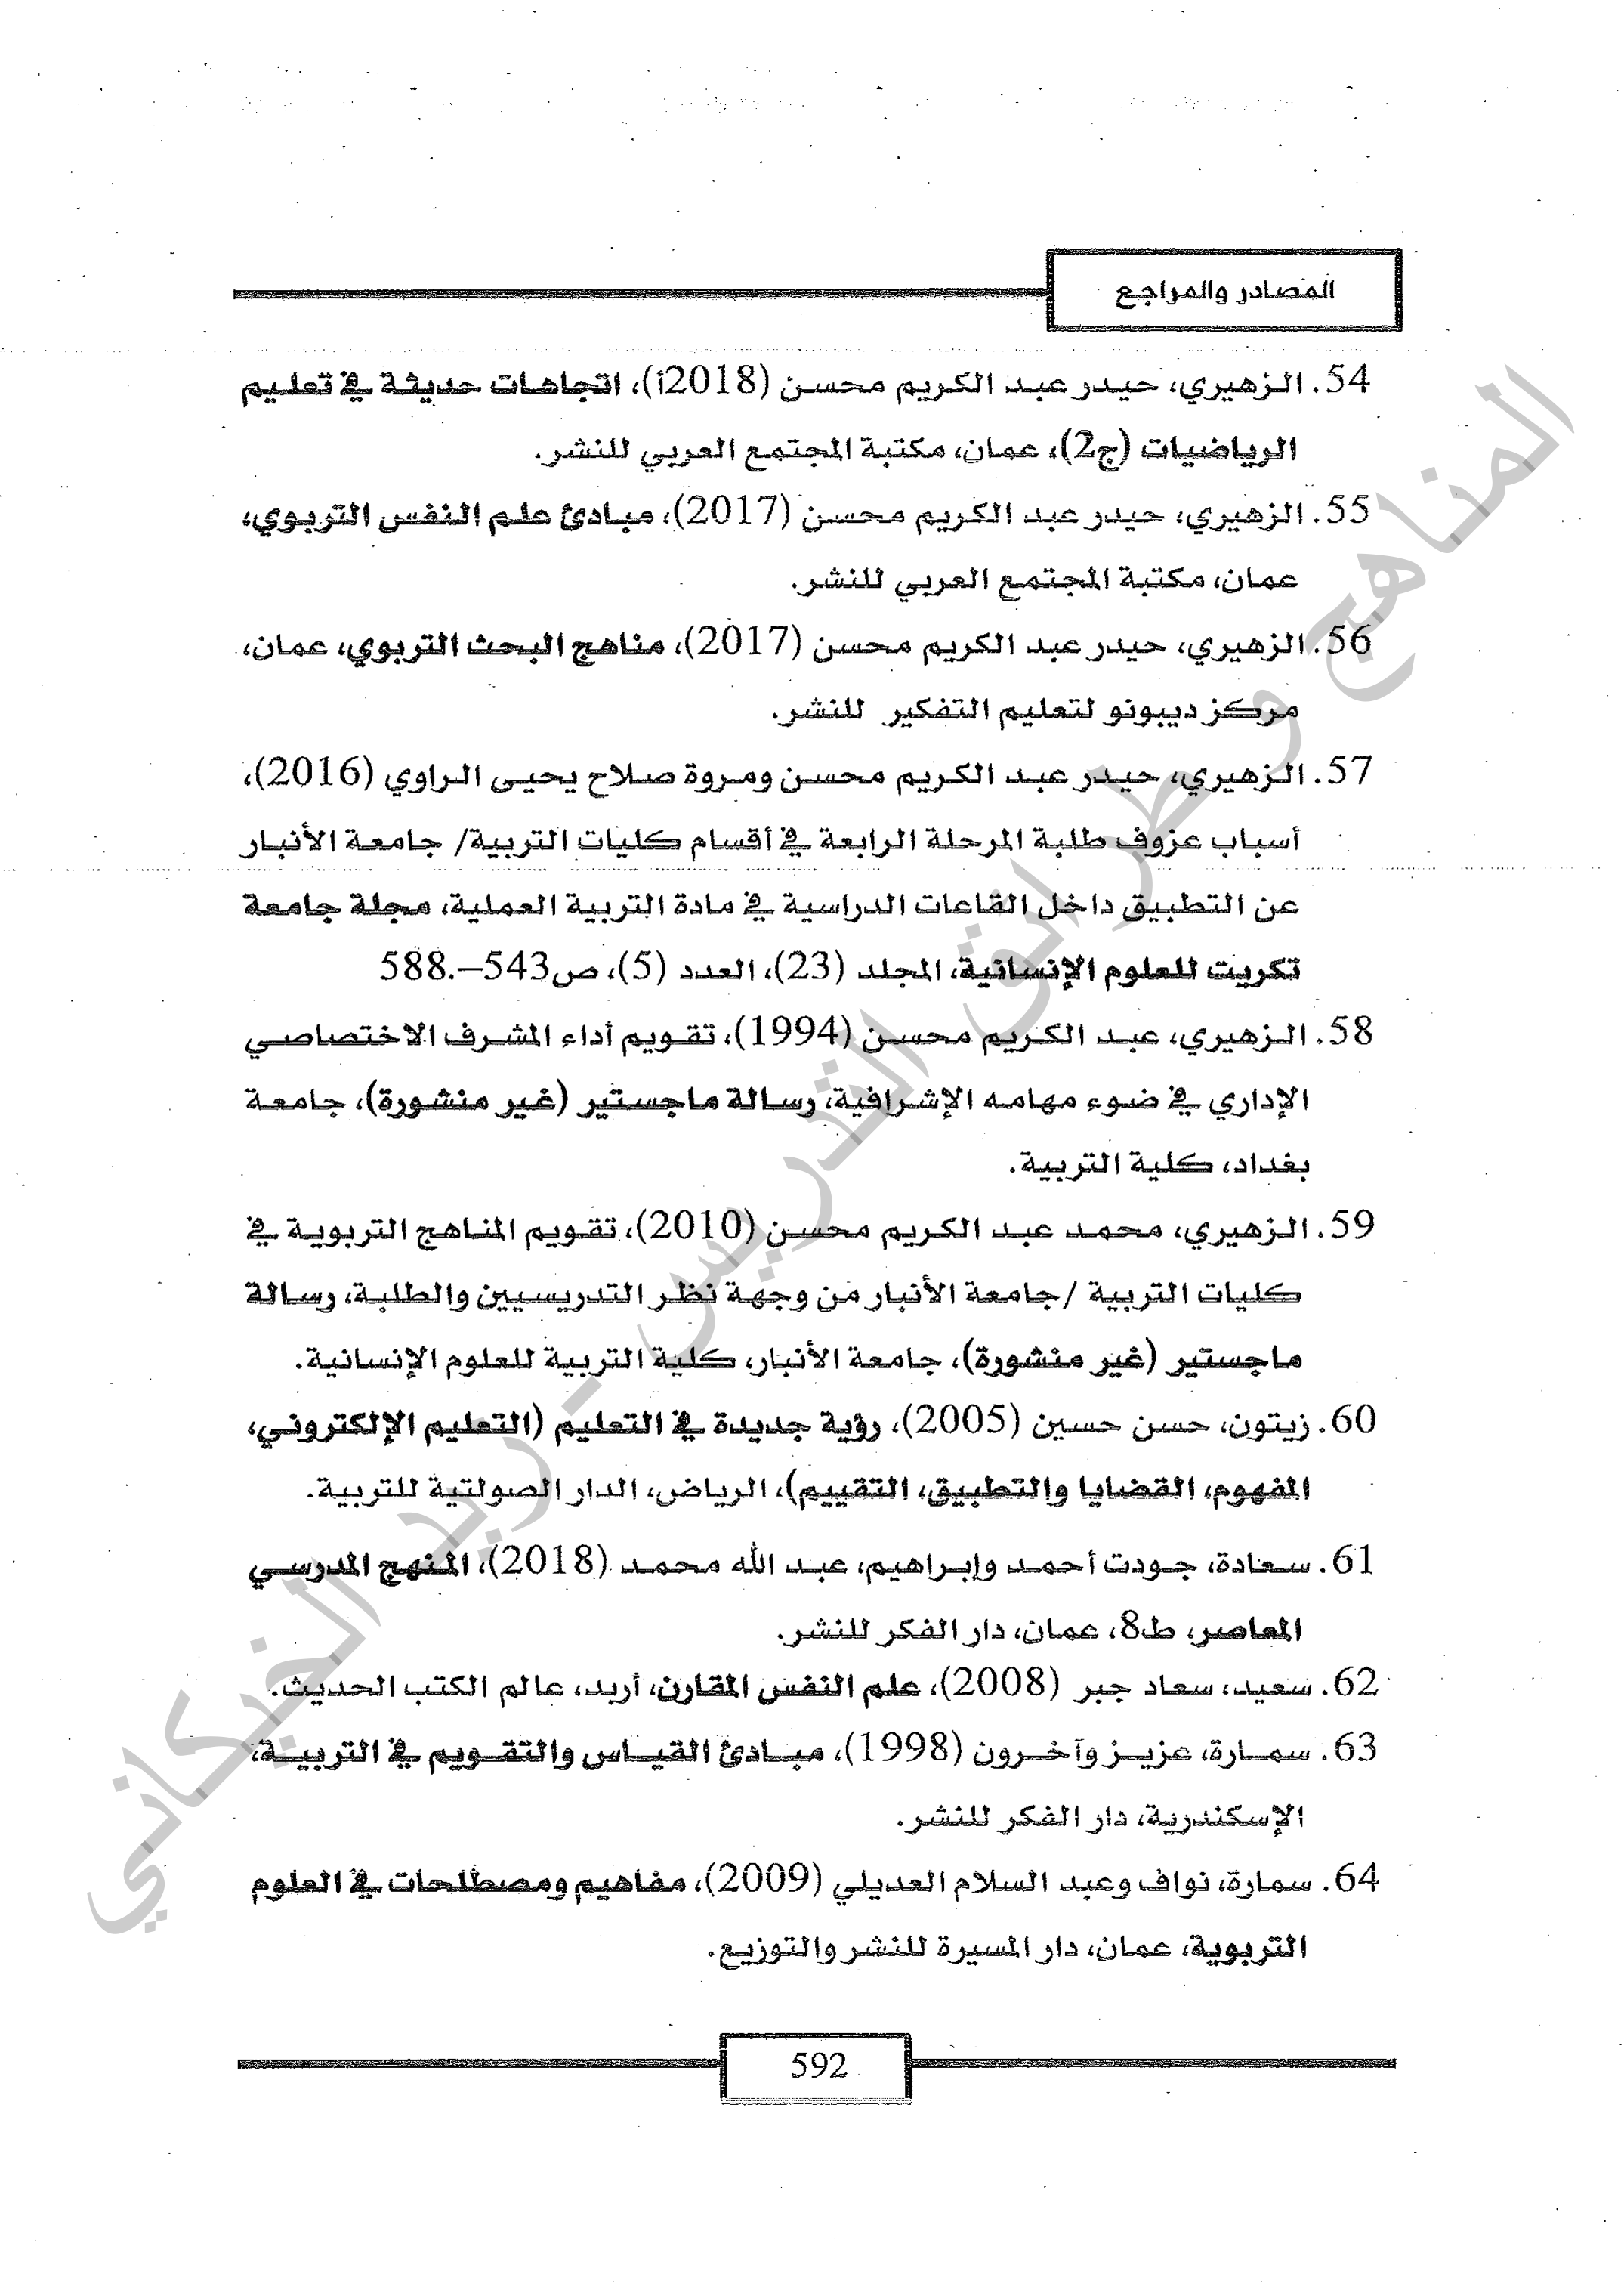 المصادر والمراجع
54. الزهيري، حيدر عبد الكريم محسن (2018أ)، اتجاهات حديثة في تعليم
الرياضيات (ج2)، عمان، مكتبة المجتمع العربي للنشر.
55. الزهيري، حيدر عبد الكريم محسن (2017)، مبادئ علم النفس التربوي،
عمان، مكتبة المجتمع العربي للنشر.
56. الزهيري، حيدر عبد الكريم محسن (2017)، مناهج البحث التربوي، عمان،
مركز ديبونو لتعليم التفكير للنشر.
57. الزهيري، حيدر عبد الكريم محسن ومروة صلاح يحيى الراوي (2016)،
أسباب عزوف طلبة المرحلة الرابعة في أقسام كليات التربية/ جامعة الأنبار
عن التطبيق داخل القاعات الدراسية في مادة التربية العملية، مجلة جامعة
تكريت للعلوم الإنسانية، المجلد (23)، العدد (5)، ص543–588.
58. الزهيري، عبد الكريم محسن (1994)، تقويم أداء المشرف الاختصاصي
الإداري في ضوء مهامه الإشرافية، رسالة ماجستير (غير منشورة)، جامعة
بغداد، كلية التربية.
59. الزهيري، محمد عبد الكريم محسن (2010)، تقويم المناهج التربوية في
كليات التربية /جامعة الأنبار من وجهة نظر التدريسيين والطلبة، رسالة
ماجستير (غير منشورة)، جامعة الأنبار، كلية التربية للعلوم الإنسانية.
60. زيتون، حسن حسين (2005)، رؤية جديدة في التعليم (التعليم الإلكتروني،
المفهوم، القضايا والتطبيق، التقييم)، الرياض، الدار الصولتية للتربية.
61. سعادة، جودت أحمد وإبراهيم، عبد الله محمد (2018)، المنهج المدرسي
المعاصر، ط8، عمان، دار الفكر للنشر.
62. سعيد، سعاد جبر (2008)، علم النفس المقارن، أربد، عالم الكتب الحديث.
63. سمارة، عزيز وآخرون (1998)، مبادئ القياس والتقويم في التربية،
الإسكندرية، دار الفكر للنشر.
64. سمارة، نواف وعبد السلام العديلي (2009)، مفاهيم ومصطلحات في العلوم
التربوية، عمان، دار المسيرة للنشر والتوزيع.
592
المناهج و طرائق التدريس - ريد الخيكاني